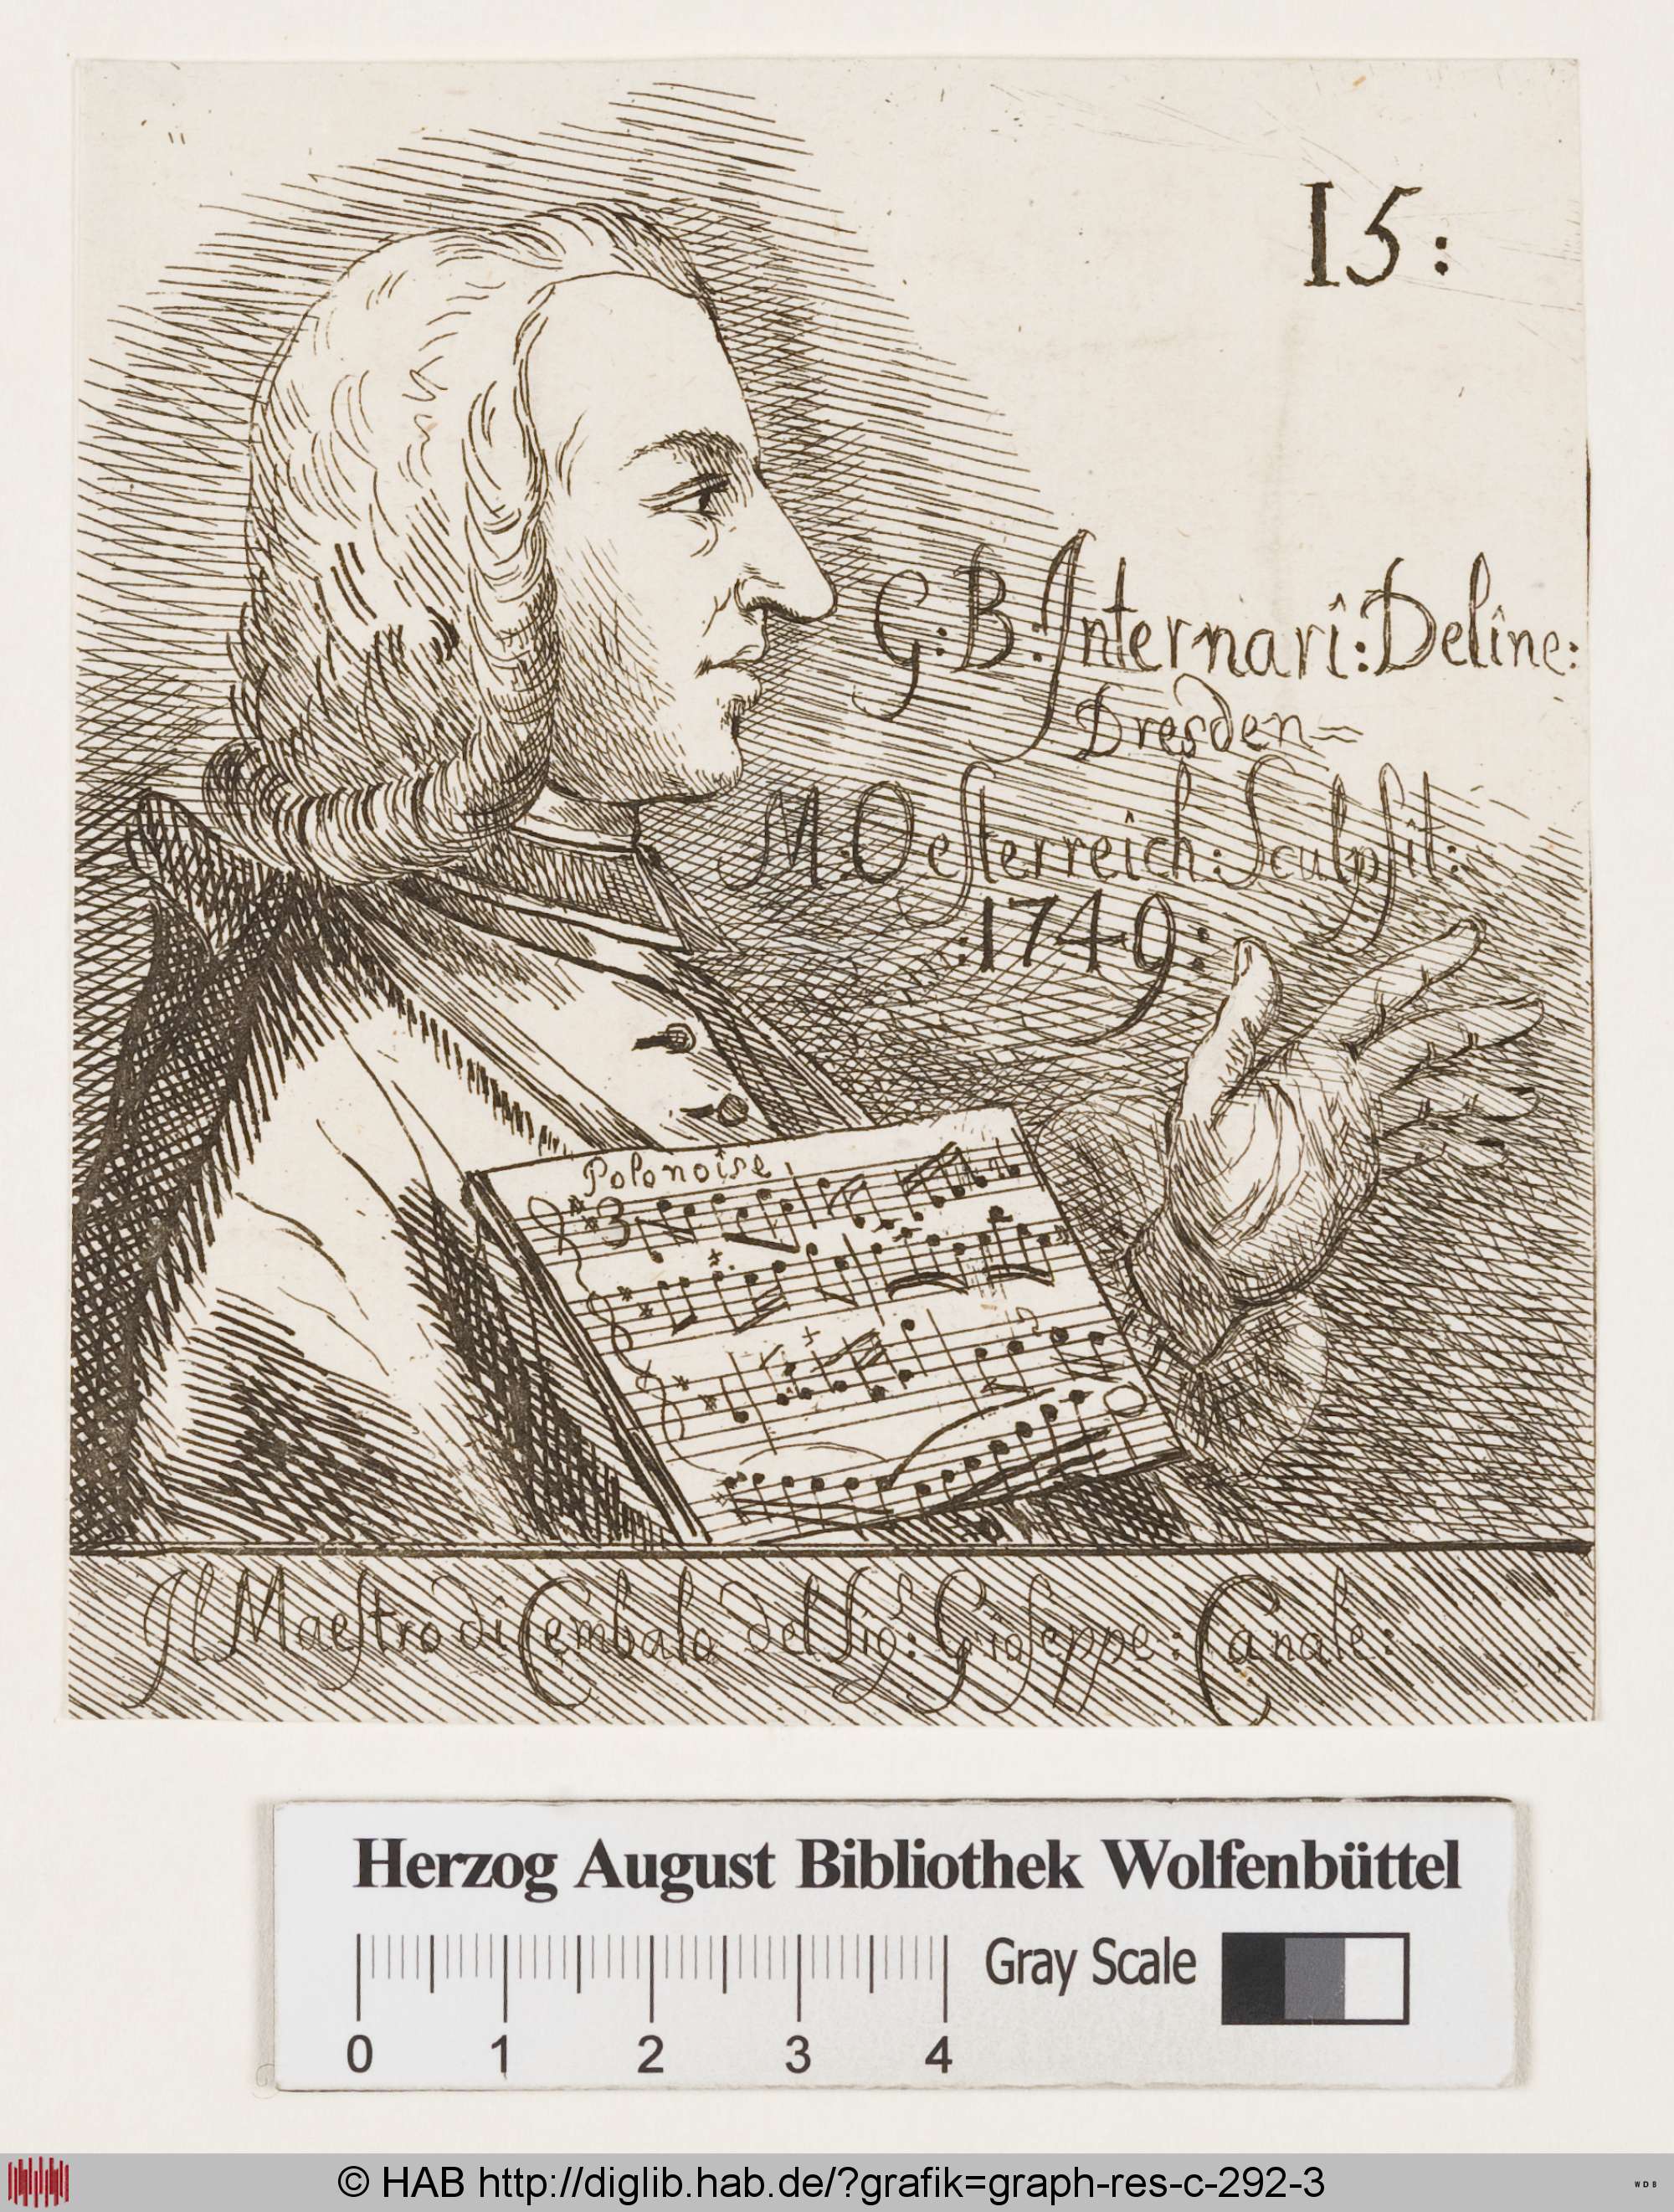 15:
G: B: Internari: Deline:
Dresden=
M: Oesterreich: Sculpsit:
:1749:
Polonoise
Il Maestro di Cembalo del Sig:r Gioseppe: Canale:
Herzog August Bibliothek Wolfenbüttel
Gray Scale
0 1 2 3 4
© HAB http://diglib.hab.de/?grafik=graph-res-c-292-3
WDB